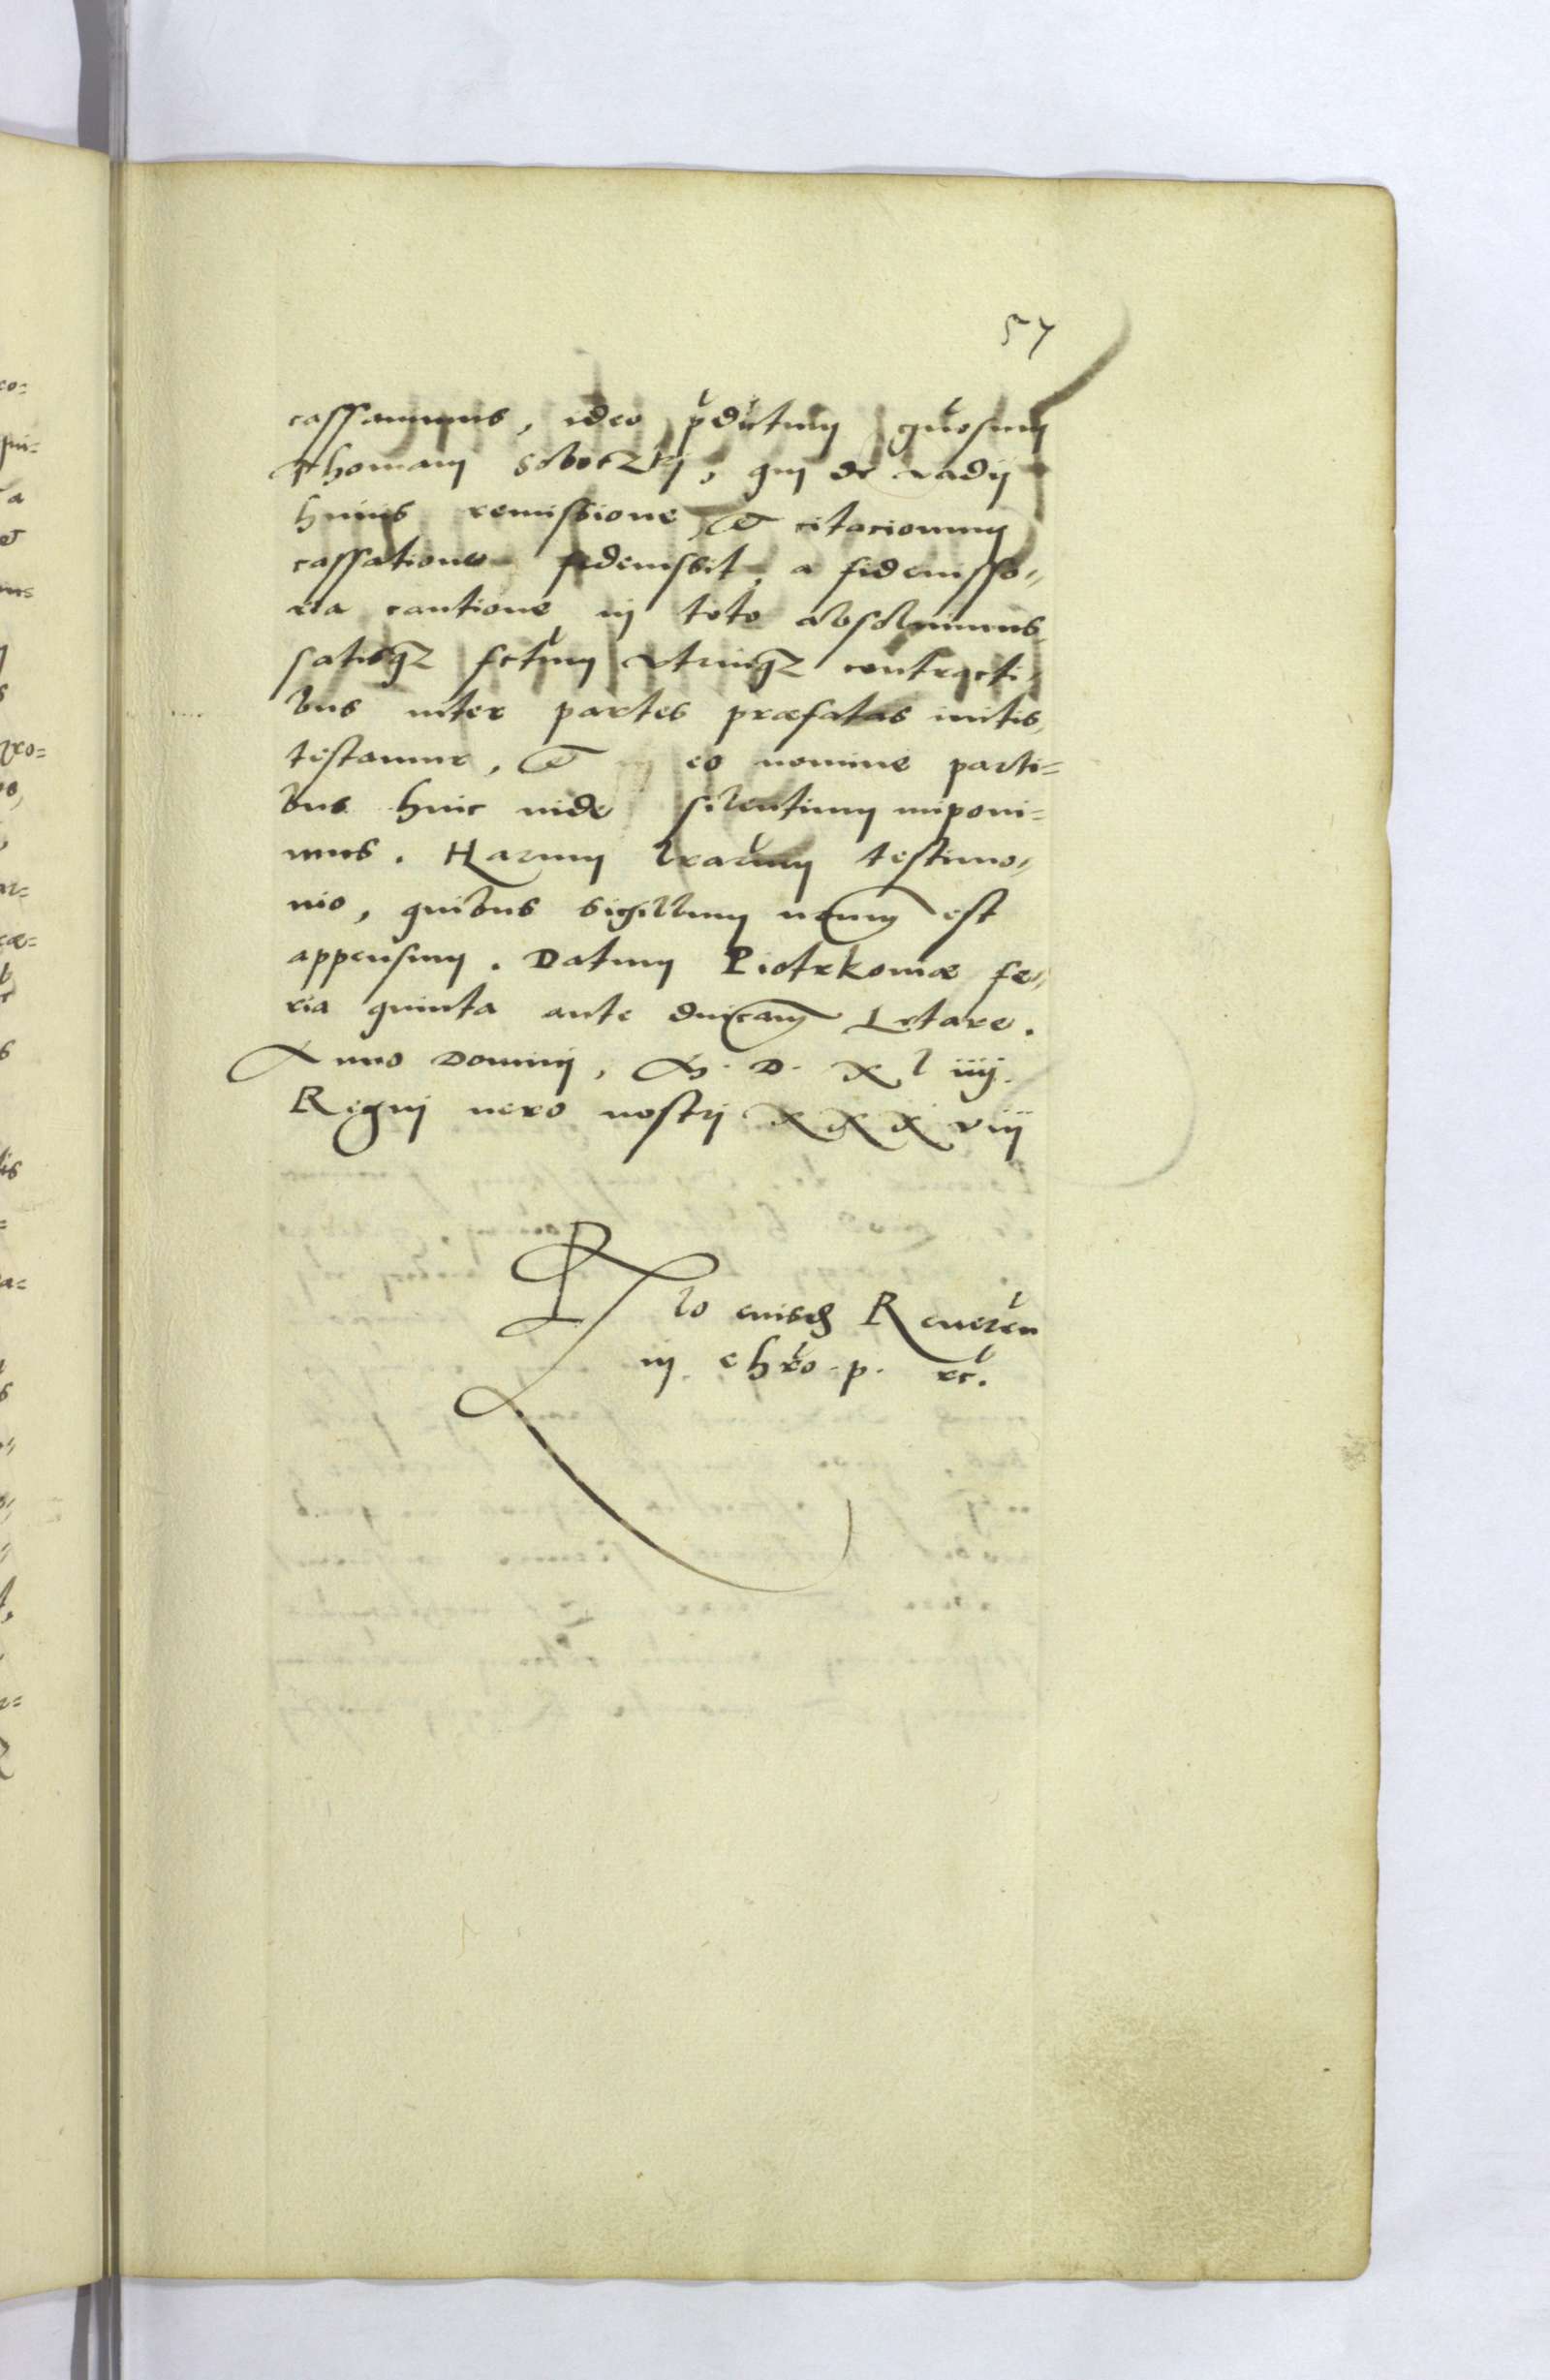 57
cassamus, ideo pdictum gnosum
Thomam Soboczkj, qui de vadij
huius remissione, & citacionum
cassatione fideiussit, a fideiusso„
ria cautione in toto absoluimus,
satisqz fctum vtrinqz contracti„
bus inter partes præfatas initis,
testamur, & eo nomine parti=
bus huic inde silentium imponi=
mus. Harum lrarum testimo„
nio, quibus sigillum nrum est
appensum. Datum Piotrkouiæ fe„
ria quinta ante dnicam Letare.
Anno Dominj, M. D. X l iiij.
Regnj uero nostrj X X X viij
Rlo eiusd Reueren
in chro. p. rc.